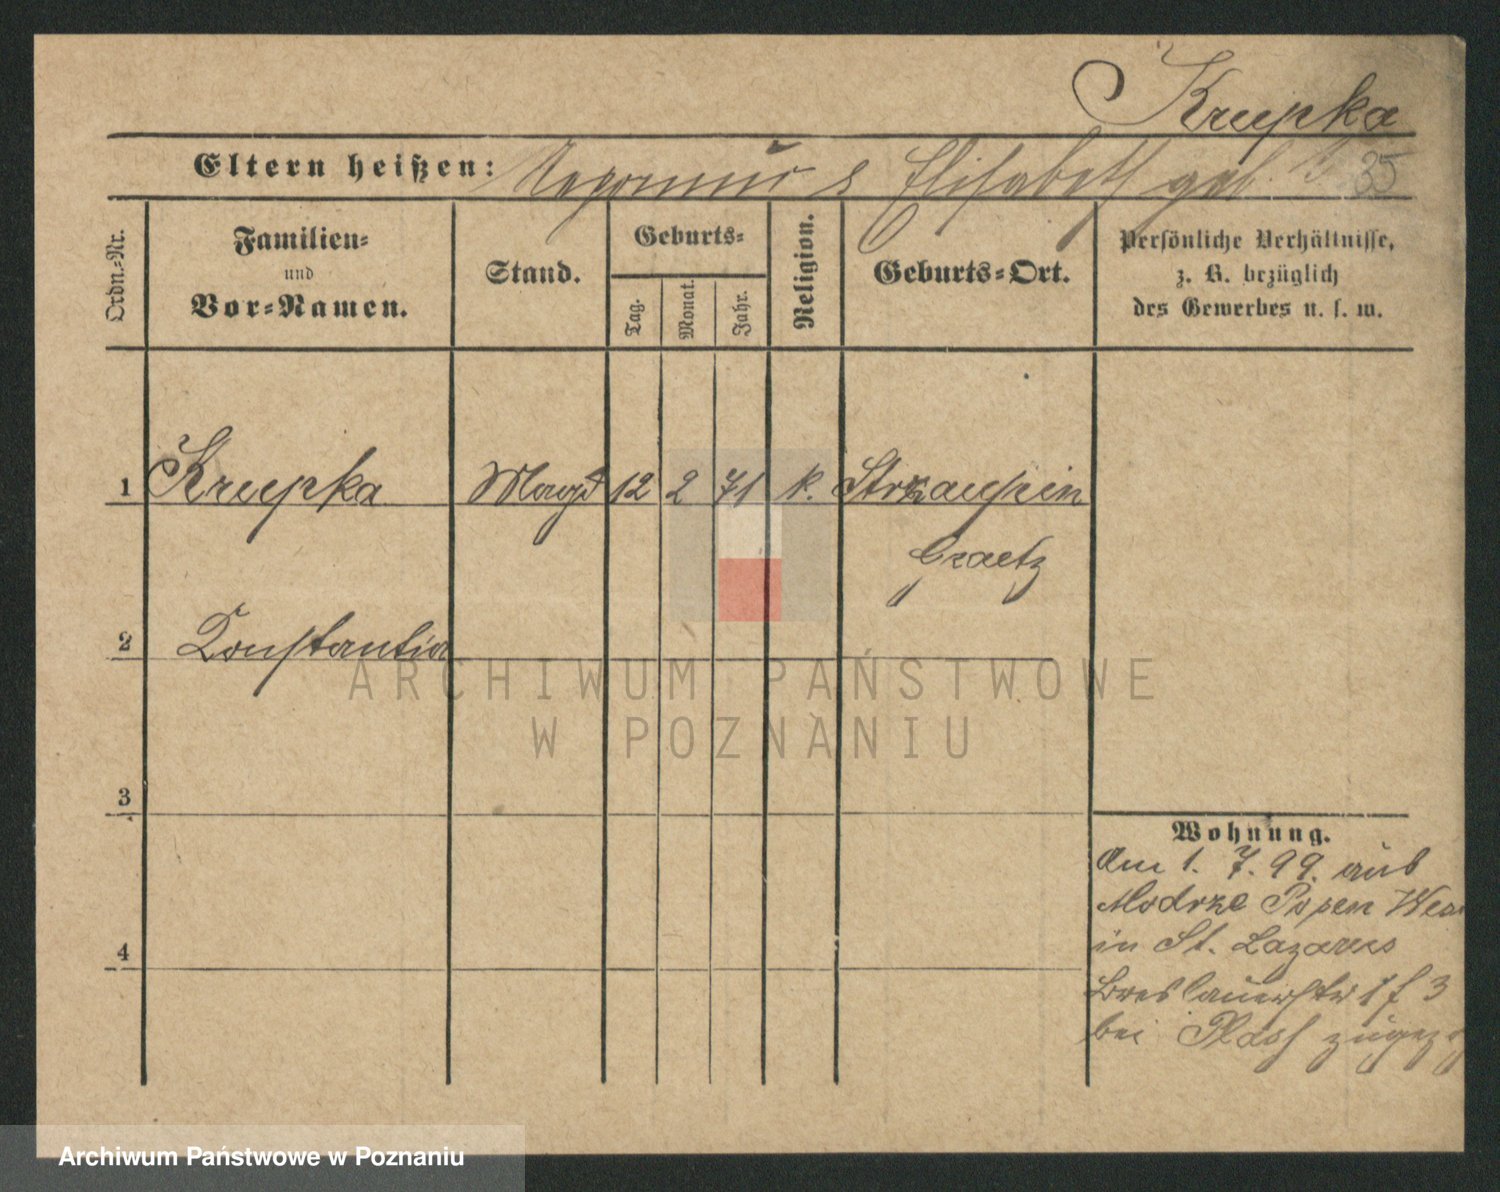 Krupka
Eltern heißen: & Elisabeth geb. 35
Ordn.-Nr.
Familien-
und
Vor-Namen.
Stand.
Geburts-
Tag.
Monat.
Jahr.
Religion.
Geburts-Ort.
Persönliche Verhältnisse,
z. B. bezüglich
des Gewerbes u. s. w.
1 Krupka Magd 12 2 71 k.
Graetz
2 Constantia
3
4
Wohnung.
Am 1. 7. 99. aus
Modrze
in St. Lazarus
Breslauerstr
bei
ARCHIWUM PAŃSTWOWE
W POZNANIU
Archiwum Państwowe w Poznaniu